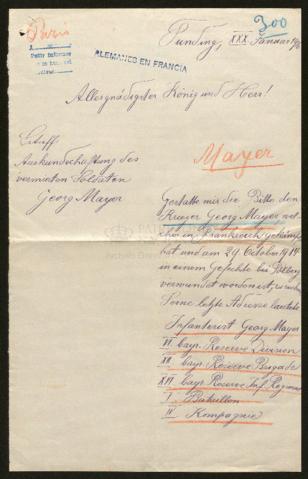 Paris
300
Punding, XXX. Januar
ALEMANES EN FRANCIA
Allergnädigster König und Herr!
Betreff
Auskundschaftung des
vermissten Soldaten
Georg Mayer
Mayer
Gestatte mir die Bitte den
Krieger Georg Mayer wel-
cher in Frankreich gekämpft
hat und am 29 October 1914
in einem Gefechte bei
verwundet worden ist, zu
Seine letzte Adresse lautete
Infanterist Georg Mayer
VI. bayr. Reserve Division
XII. bayr. Reserve Brigade
XVI bayr. Reserve Inf. Regiment
I. Bataillon
IV Kompagnie